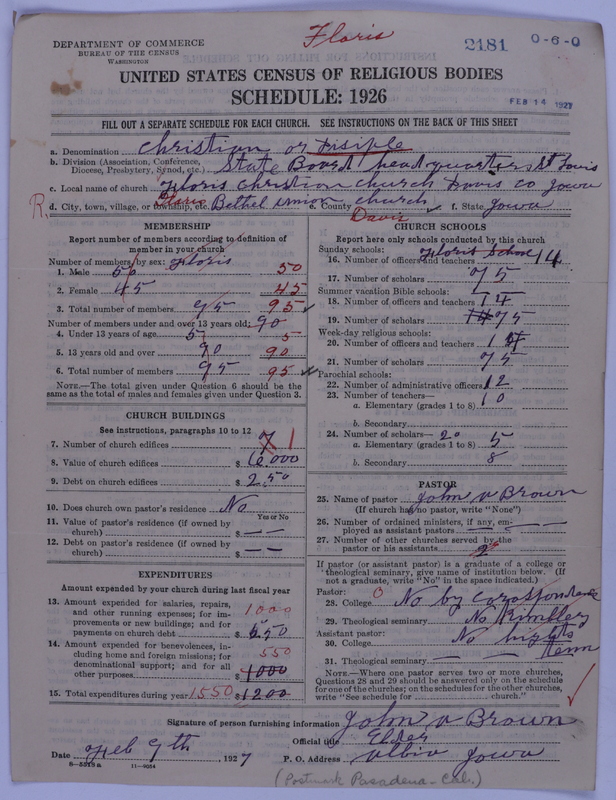 DEPARTMENT OF COMMERCE
BUREAU OF THE CENSUS
WASHINGTON
Floris
2181
0-6-0
UNITED STATES CENSUS OF RELIGIOUS BODIES
SCHEDULE: 1926
FEB 14 1927
FILL OUT A SEPARATE SCHEDULE FOR EACH CHURCH. SEE INSTRUCTIONS ON THE BACK OF THIS SHEET
a. Denomination Christian or Disiple
b. Division (Association, Conference, Diocese, Presbytery, Synod, etc.) State Board head quarters St Louis
c. Local name of church Floris Christion Church Davis co Iowa
R. d. City, town, village, or township, etc. Floris Bethel union church e. County Davis f. State Iowa
MEMBERSHIP
Report number of members according to definition of member in your church
Number of members by sex: Floris
1. Male 50 50
2. Female 45 45
3. Total number of members 95 95
Number of members under and over 13 years old: 90
4. Under 13 years of age 5 5
5. 13 years old and over 90 90
6. Total number of members 95 95
NOTE.—The total given under Question 6 should be the same as the total of males and females given under Question 3.
CHURCH BUILDINGS
See instructions, paragraphs 10 to 12
7. Number of church edifices 1
8. Value of church edifices $ 6000
9. Debt on church edifices $ 2.50
10. Does church own pastor's residence No
Yes or No
11. Value of pastor's residence (if owned by church) $ — —
12. Debt on pastor's residence (if owned by church) $ — —
EXPENDITURES
Amount expended by your church during last fiscal year
13. Amount expended for salaries, repairs, and other running expenses; for improvements or new buildings; and for payments on church debt 1000 $ 550
14. Amount expended for benevolences, including home and foreign missions; for denominational support; and for all other purposes 550 $ 1000
15. Total expenditures during year 1550 $ 1200
CHURCH SCHOOLS
Report here only schools conducted by this church
Sunday schools: Floris School
16. Number of officers and teachers 14
17. Number of scholars 75
Summer vacation Bible schools:
18. Number of officers and teachers 14
19. Number of scholars 14 75
Week-day religious schools:
20. Number of officers and teachers 1
21. Number of scholars 75
Parochial schools:
22. Number of administrative officers 12
23. Number of teachers—
a. Elementary (grades 1 to 8) 10
b. Secondary
24. Number of scholars— 20
a. Elementary (grades 1 to 8) 5
b. Secondary 8
PASTOR
25. Name of pastor John W Brown
(If church had no pastor, write "None")
26. Number of ordained ministers, if any, employed as assistant pastors
27. Number of other churches served by the pastor or his assistants 2
If pastor (or assistant pastor) is a graduate of a college or theological seminary, give name of institution below. (If not a graduate, write "No" in the space indicated.)
Pastor: 0
28. College No by corospondance
29. Theological seminary No Kimbley
Assistant pastor:
30. College No hights
31. Theological seminary — — Tenn
NOTE.—Where one pastor serves two or more churches, Questions 28 and 29 should be answered only on the schedule for one of the churches; on the schedules for the other churches, write "See schedule for ........ church."
Signature of person furnishing information John W Brown
Official title Elder
Date Feb 9th, 1927 P. O. Address Albia Iowa
8—5313a 11—9054
(Postmark Pasadena - Cal.)